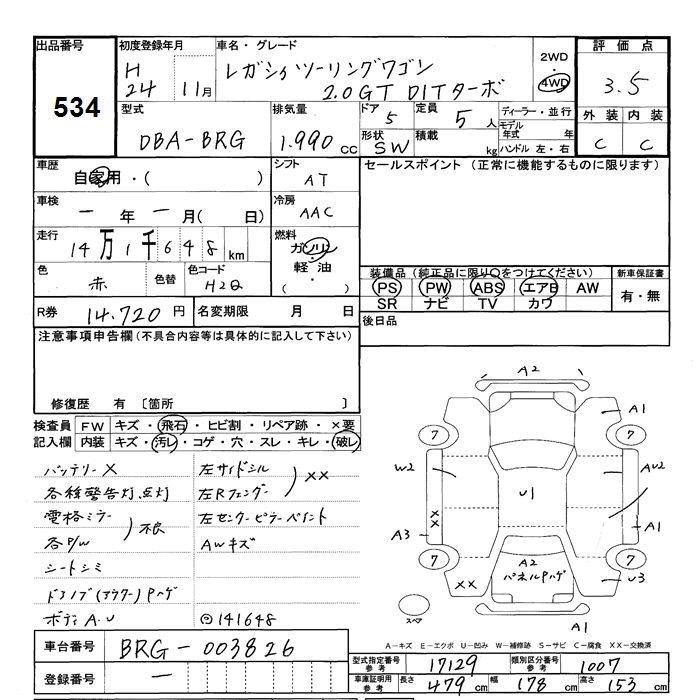 出品番号 534
初度登録年月 H 24 11月
車名・グレード レガシィツーリングワゴン 2.0GT DITターボ
2WD・4WD
評価点 3.5
外装 内装
C C
型式 DBA-BRG
排気量 1.990 CC
ドア 5
定員 5人
形状 SW
積載 kg
ディーラー・並行
モデル年式 年
ハンドル 左・右
車歴 自家用・( )
シフト AT
セールスポイント (正常に機能するものに限ります)
車検 ー年ー月( 日)
冷房 AAC
走行 14万1千648km
燃料 ガソリン・軽油・( )
色 赤
色替
色コード H2Q
装備品 (純正品に限り○をつけてください)
新車保証書
PS PW ABS エアB AW
有・無
SR ナビ TV カワ
R券 14.720円
名変期限 月 日
後日品
注意事項申告欄 (不具合内容等は具体的に記入して下さい)
修復歴 有 〔箇所 〕
検査員記入欄
FW キズ・飛石・ヒビ割・リペア跡・×要
内装 キズ・汚レ・コゲ・穴・スレ・キレ・破レ
バッテリー×
各種警告灯点灯
電格ミラー
各P/W
不良
シートシミ
ドアノブ(アウター)Pハゲ
ボディA.U
左サイドシル
左Rフェンダー
××
左センターピラーペイント
AWキズ
◎141648
A2
A1
7
7
W2
AU2
U1
××
A3
A1
7
7
A2
パネルPハゲ
××
U3
スペア
A1
A-キズ E-エクボ U-凹み W-補修跡 S-サビ C-腐食 XX-交換済
車台番号 BRG-003826
登録番号 ー
型式指定番号 参考 17129
類別区分番号 参考 1007
車庫証明用 参考
長さ 479cm 幅 178cm 高さ 153cm